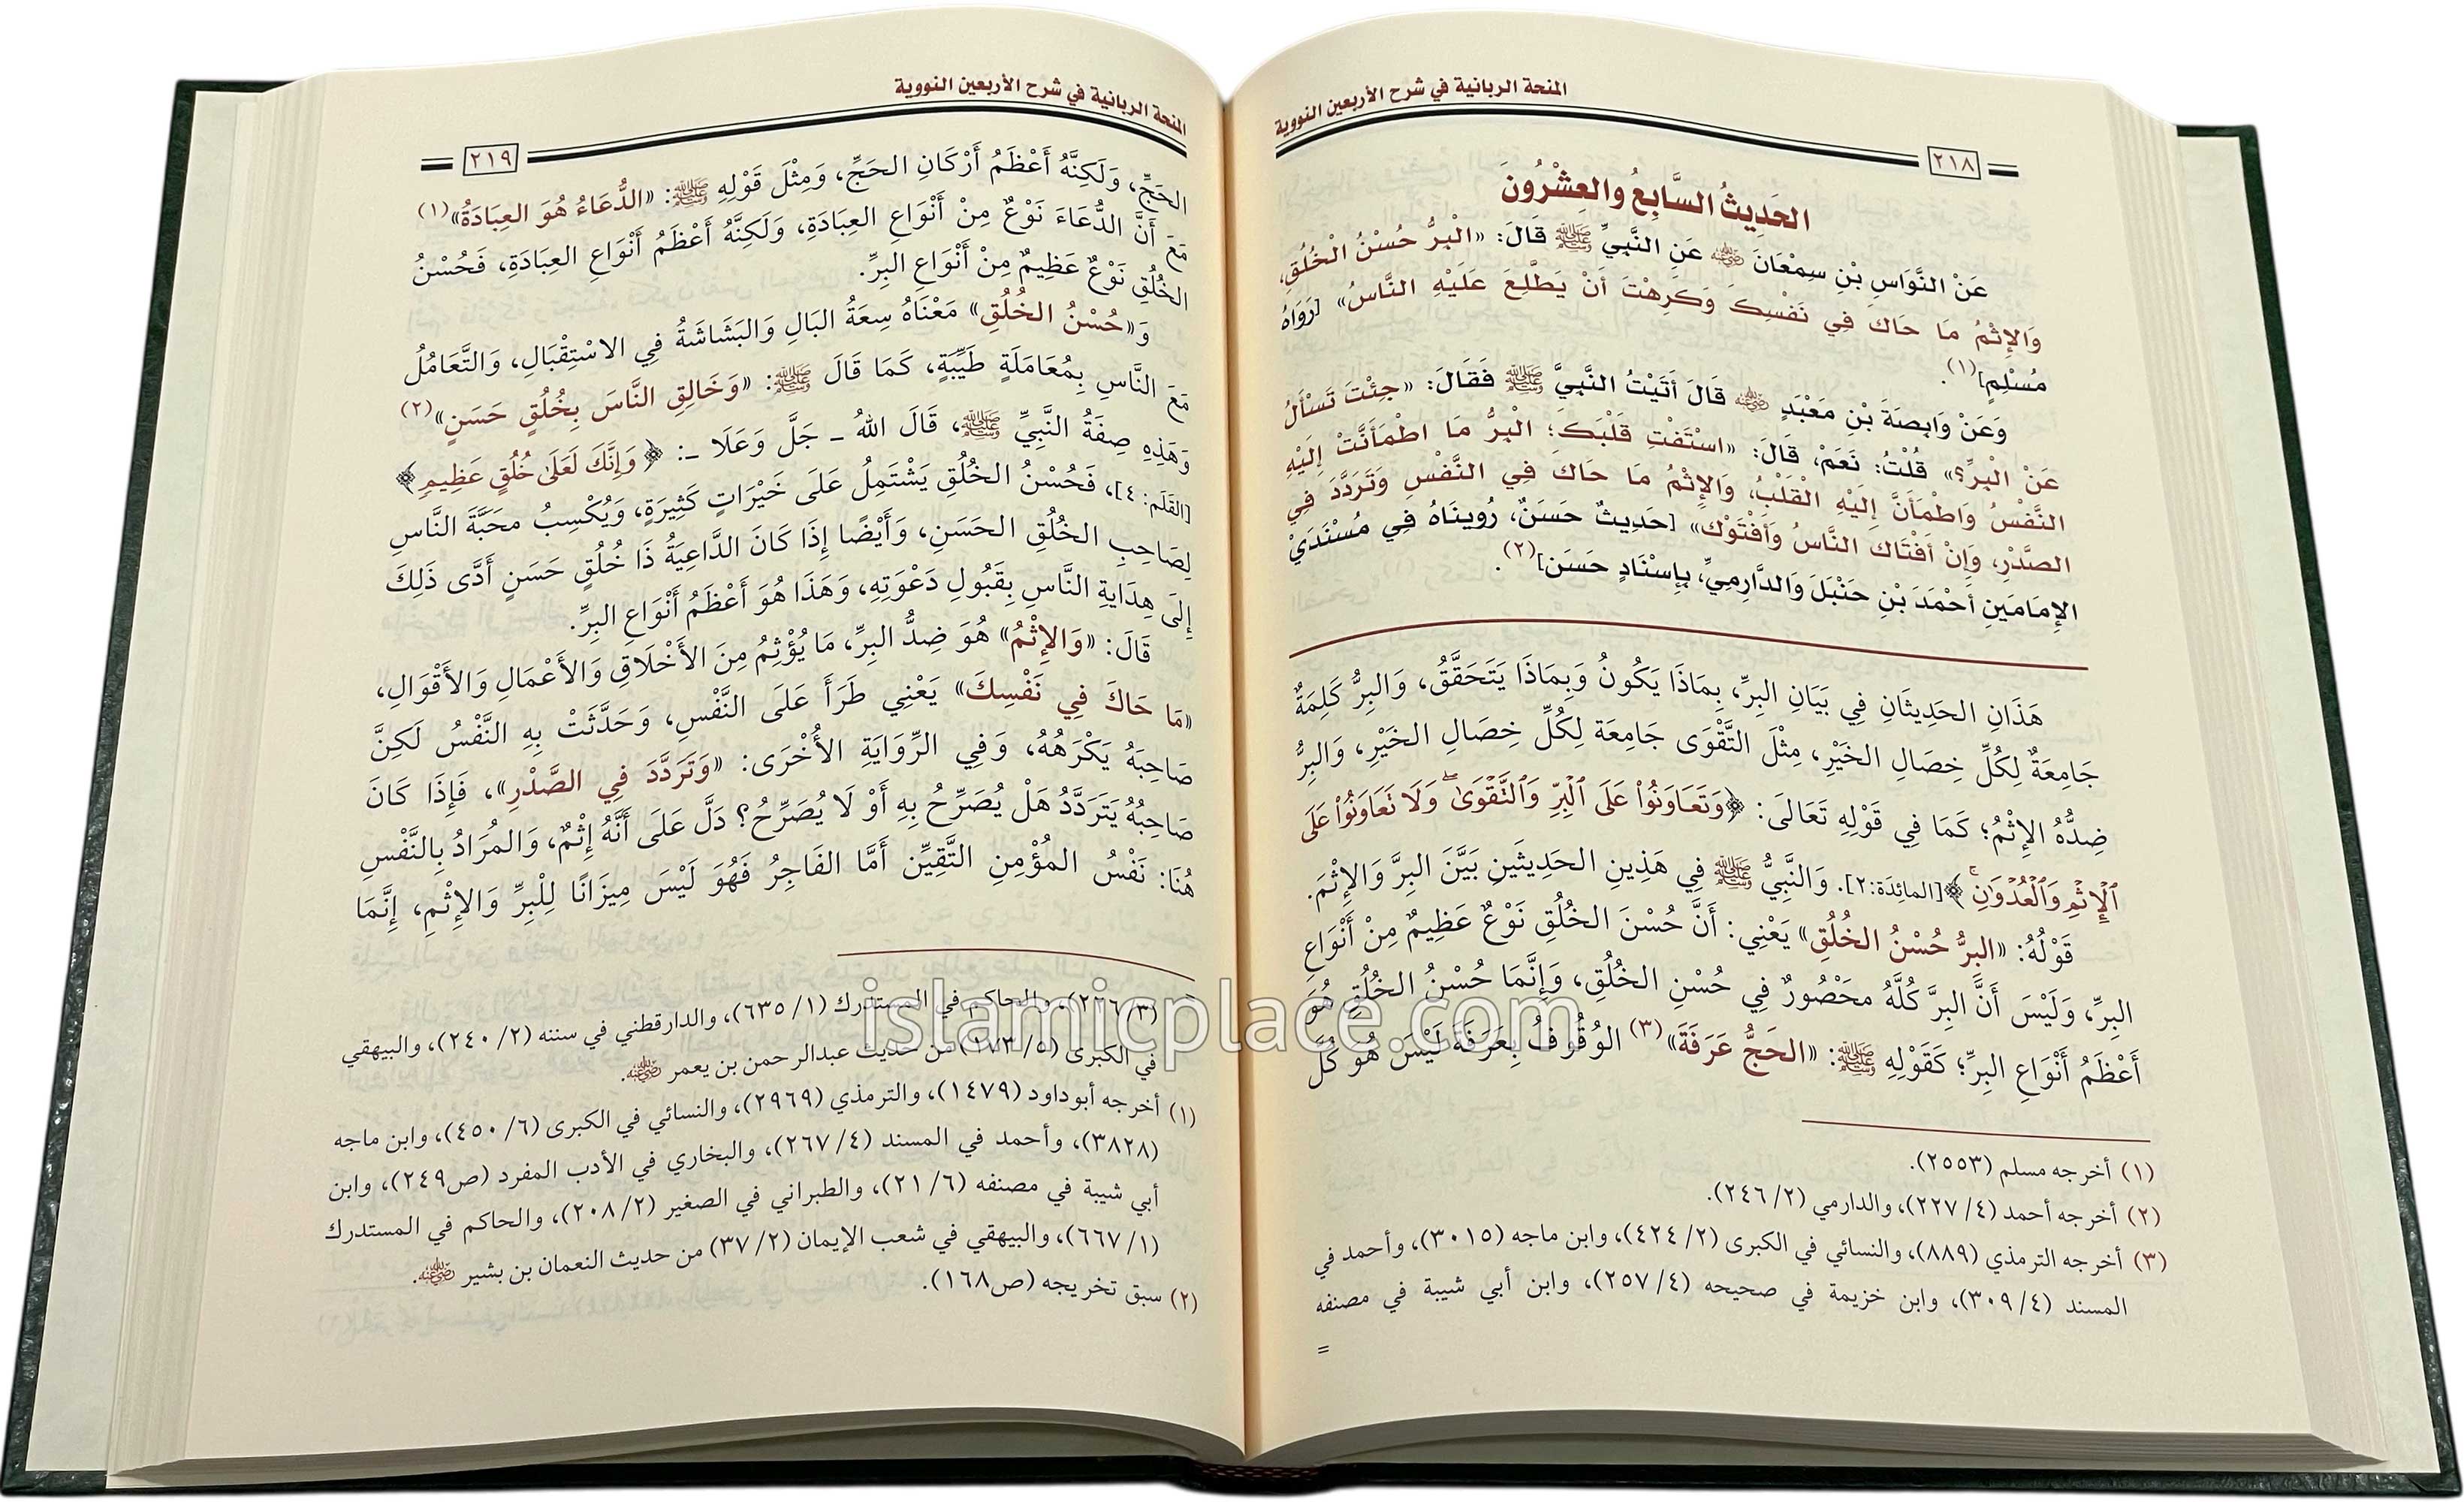 المنحة الربانية في شرح الأربعين النووية
٢١٨
الحَدِيثُ السَّابِعُ والعِشْرُونَ
عَنْ النَّوَاسِ بْنِ سِمْعَانَ رضي الله عنه عَنِ النَّبِيِّ ﷺ قَالَ: «الْبِرُّ حُسْنُ الْخُلُقِ،
وَالإِثْمُ مَا حَاكَ فِي نَفْسِكَ وَكَرِهْتَ أَنْ يَطَّلِعَ عَلَيْهِ النَّاسُ» [رَوَاهُ
مُسْلِمٍ](١).
وَعَنْ وَابِصَةَ بْنِ مَعْبَدٍ رضي الله عنه قَالَ أَتَيْتُ النَّبِيَّ ﷺ فَقَالَ: «جِئْتَ تَسْأَلُ
عَنْ الْبِرِّ؟» قُلْتُ: نَعَمْ، قَالَ: «اسْتَفْتِ قَلْبَكَ؛ الْبِرُّ مَا اطْمَأَنَّتْ إِلَيْهِ
النَّفْسُ وَاطْمَأَنَّ إِلَيْهِ الْقَلْبُ، وَالإِثْمُ مَا حَاكَ فِي النَّفْسِ وَتَرَدَّدَ فِي
الصَّدْرِ، وَإِنْ أَفْتَاكَ النَّاسُ وَأَفْتَوْك» [حَدِيثٌ حَسَنٌ، رُوِينَاهُ فِي مُسْنَدَيْ
الإِمَامَينِ أَحْمَدَ بْنِ حَنْبَلَ وَالدَّارِمِيِّ، بِإِسْنَادٍ حَسَن](٢).
هَذَانِ الحَدِيثَانِ فِي بَيَانِ البِرِّ، بِمَاذَا يَكُونُ وَبِمَاذَا يَتَحَقَّقُ، وَالبِرُّ كَلِمَةٌ
جَامِعَةٌ لِكُلِّ خِصَالِ الخَيْرِ، مِثْلَ التَّقْوَى جَامِعَة لِكُلِّ خِصَالِ الخَيْرِ، وَالبِرُّ
ضِدُّهُ الإِثْمُ؛ كَمَا فِي قَوْلِهِ تَعَالَى: ﴿وَتَعَاوَنُواْ عَلَى ٱلۡبِرِّ وَٱلتَّقۡوَىٰۖ وَلَا تَعَاوَنُواْ عَلَى
ٱلۡإِثۡمِ وَٱلۡعُدۡوَٰنِۚ﴾ [المائِدَة:٢]. وَالنَّبِيُّ ﷺ فِي هَذِينِ الحَدِيثَينِ بَيَّنَ البِرَّ وَالإِثْمَ.
قَوْلُهُ: «البِرُّ حُسْنُ الخُلُقِ» يَعْنِي: أَنَّ حُسْنَ الخُلُقِ نَوْعٌ عَظِيمٌ مِنْ أَنْوَاعِ
البِرِّ، وَلَيْسَ أَنَّ البِرَّ كُلَّهُ مَحْصُورٌ فِي حُسْنِ الخُلُقِ، وَإِنَّمَا حُسْنُ الخُلُقِ هُوَ
أَعْظَمُ أَنْوَاعِ البِرِّ؛ كَقَوْلِهِ ﷺ: «الحَجُّ عَرَفَةَ»(٣) الوُقُوفُ بِعَرَفَةَ لَيْسَ هُوَ كُلَّ
(١) أخرجه مسلم (٢٥٥٣).
(٢) أخرجه أحمد (٤/ ٢٢٧)، والدارمي (٢/ ٢٤٦).
(٣) أخرجه الترمذي (٨٨٩)، والنسائي في الكبرى (٢/ ٤٢٤)، وابن ماجه (٣٠١٥)، وأحمد في
المسند (٤/ ٣٠٩)، وابن خزيمة في صحيحه (٤/ ٢٥٧)، وابن أبي شيبة في مصنفه
=
المنحة الربانية في شرح الأربعين النووية
٢١٩
الحَجِّ، وَلَكِنَّهُ أَعْظَمُ أَرْكَانِ الحَجِّ، وَمِثْلَ قَوْلِهِ ﷺ: «الدُّعَاءُ هُوَ العِبَادَةُ»(١)
مَعَ أَنَّ الدُّعَاءَ نَوْعٌ مِنْ أَنْوَاعِ العِبَادَةِ، وَلَكِنَّهُ أَعْظَمُ أَنْوَاعِ العِبَادَةِ، فَحُسْنُ
الخُلُقِ نَوْعٌ عَظِيمٌ مِنْ أَنْوَاعِ البِرِّ.
وَ«حُسْنُ الخُلُقِ» مَعْنَاهُ سِعَةُ البَالِ وَالبَشَاشَةُ فِي الاسْتِقْبَالِ، وَالتَّعَامُلُ
مَعَ النَّاسِ بِمُعَامَلَةٍ طَيِّبَةٍ، كَمَا قَالَ ﷺ: «وَخَالِقِ النَّاسَ بِخُلُقٍ حَسَنٍ»(٢)
وَهَذِهِ صِفَةُ النَّبِيِّ ﷺ، قَالَ اللهُ ـ جَلَّ وَعَلَا ـ: ﴿وَإِنَّكَ لَعَلَىٰ خُلُقٍ عَظِيمٍ﴾
[القَلَم: ٤]، فَحُسْنُ الخُلُقِ يَشْتَمِلُ عَلَى خَيْرَاتٍ كَثِيرَةٍ، وَيُكْسِبُ مَحَبَّةَ النَّاسِ
لِصَاحِبِ الخُلُقِ الحَسَنِ، وَأَيْضًا إِذَا كَانَ الدَّاعِيَةُ ذَا خُلُقٍ حَسَنٍ أَدَّى ذَلِكَ
إِلَى هِدَايَةِ النَّاسِ بِقَبُولِ دَعْوَتِهِ، وَهَذَا هُوَ أَعْظَمُ أَنْوَاعِ البِرِّ.
قَالَ: «وَالإِثْمُ» هُوَ ضِدُّ البِرِّ، مَا يُؤْثِمُ مِنَ الأَخْلَاقِ وَالأَعْمَالِ وَالأَقْوَالِ،
«مَا حَاكَ فِي نَفْسِكَ» يَعْنِي طَرَأَ عَلَى النَّفْسِ، وَحَدَّثَتْ بِهِ النَّفْسُ لَكِنَّ
صَاحِبَهُ يَكْرَهُهُ، وَفِي الرِّوَايَةِ الأُخْرَى: «وَتَرَدَّدَ فِي الصَّدْرِ»، فَإِذَا كَانَ
صَاحِبُهُ يَتَرَدَّدُ هَلْ يُصَرِّحُ بِهِ أَوْ لَا يُصَرِّحُ؟ دَلَّ عَلَى أَنَّهُ إِثْمٌ، وَالمُرَادُ بِالنَّفْسِ
هُنَا: نَفْسُ المُؤْمِنِ التَّقِيِّن أَمَّا الفَاجِرُ فَهُوَ لَيْسَ مِيزَانًا لِلْبِرِّ وَالإِثْمِ، إِنَّمَا
(٣/ ٢٢٦)، والحاكم في المستدرك (١/ ٦٣٥)، والدارقطني في سننه (٢/ ٢٤٠)، والبيهقي
في الكبرى (٥/ ١٧٣) من حديث عبدالرحمن بن يعمر رضي الله عنه.
(١) أخرجه أبوداود (١٤٧٩)، والترمذي (٢٩٦٩)، والنسائي في الكبرى (٦/ ٤٥٠)، وابن ماجه
(٣٨٢٨)، وأحمد في المسند (٤/ ٢٦٧)، والبخاري في الأدب المفرد (ص٢٤٩)، وابن
أبي شيبة في مصنفه (٦/ ٢١)، والطبراني في الصغير (٢/ ٢٠٨)، والحاكم في المستدرك
(١/ ٦٦٧)، والبيهقي في شعب الإيمان (٢/ ٣٧) من حديث النعمان بن بشير رضي الله عنه.
(٢) سبق تخريجه (ص١٦٨).
islamicplace.com